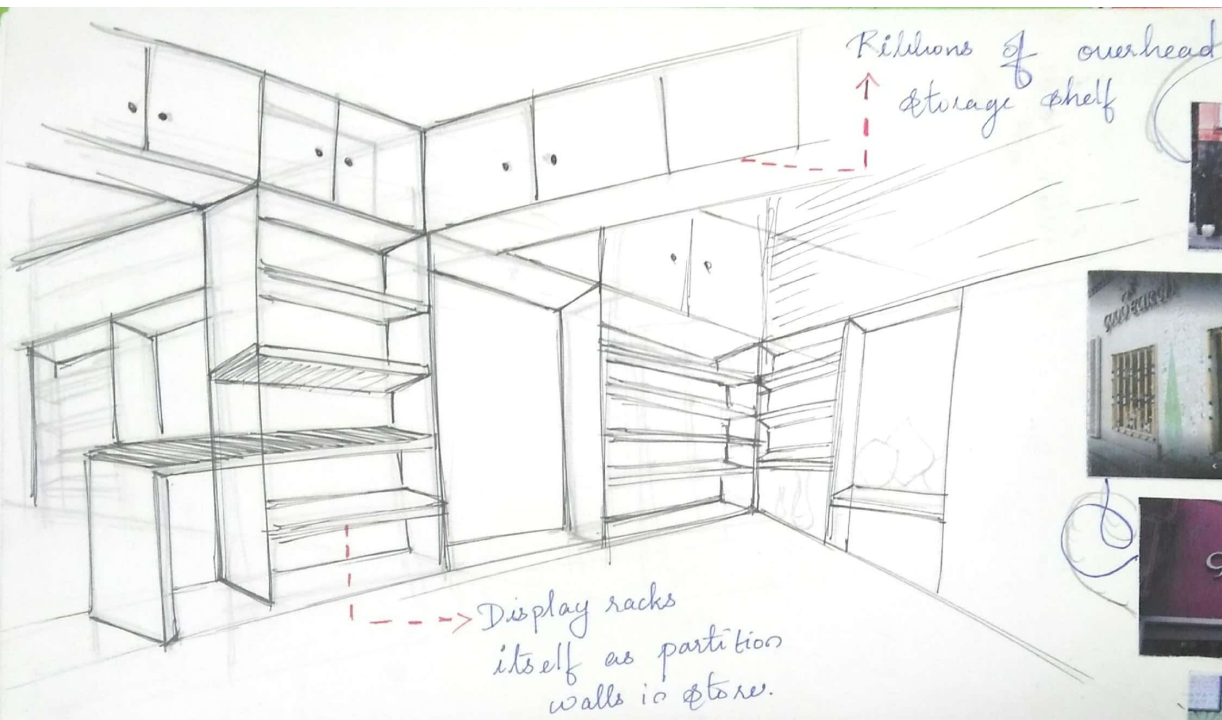 Ribbons of overhead
storage shelf
Display racks
itself as partition
walls in store.